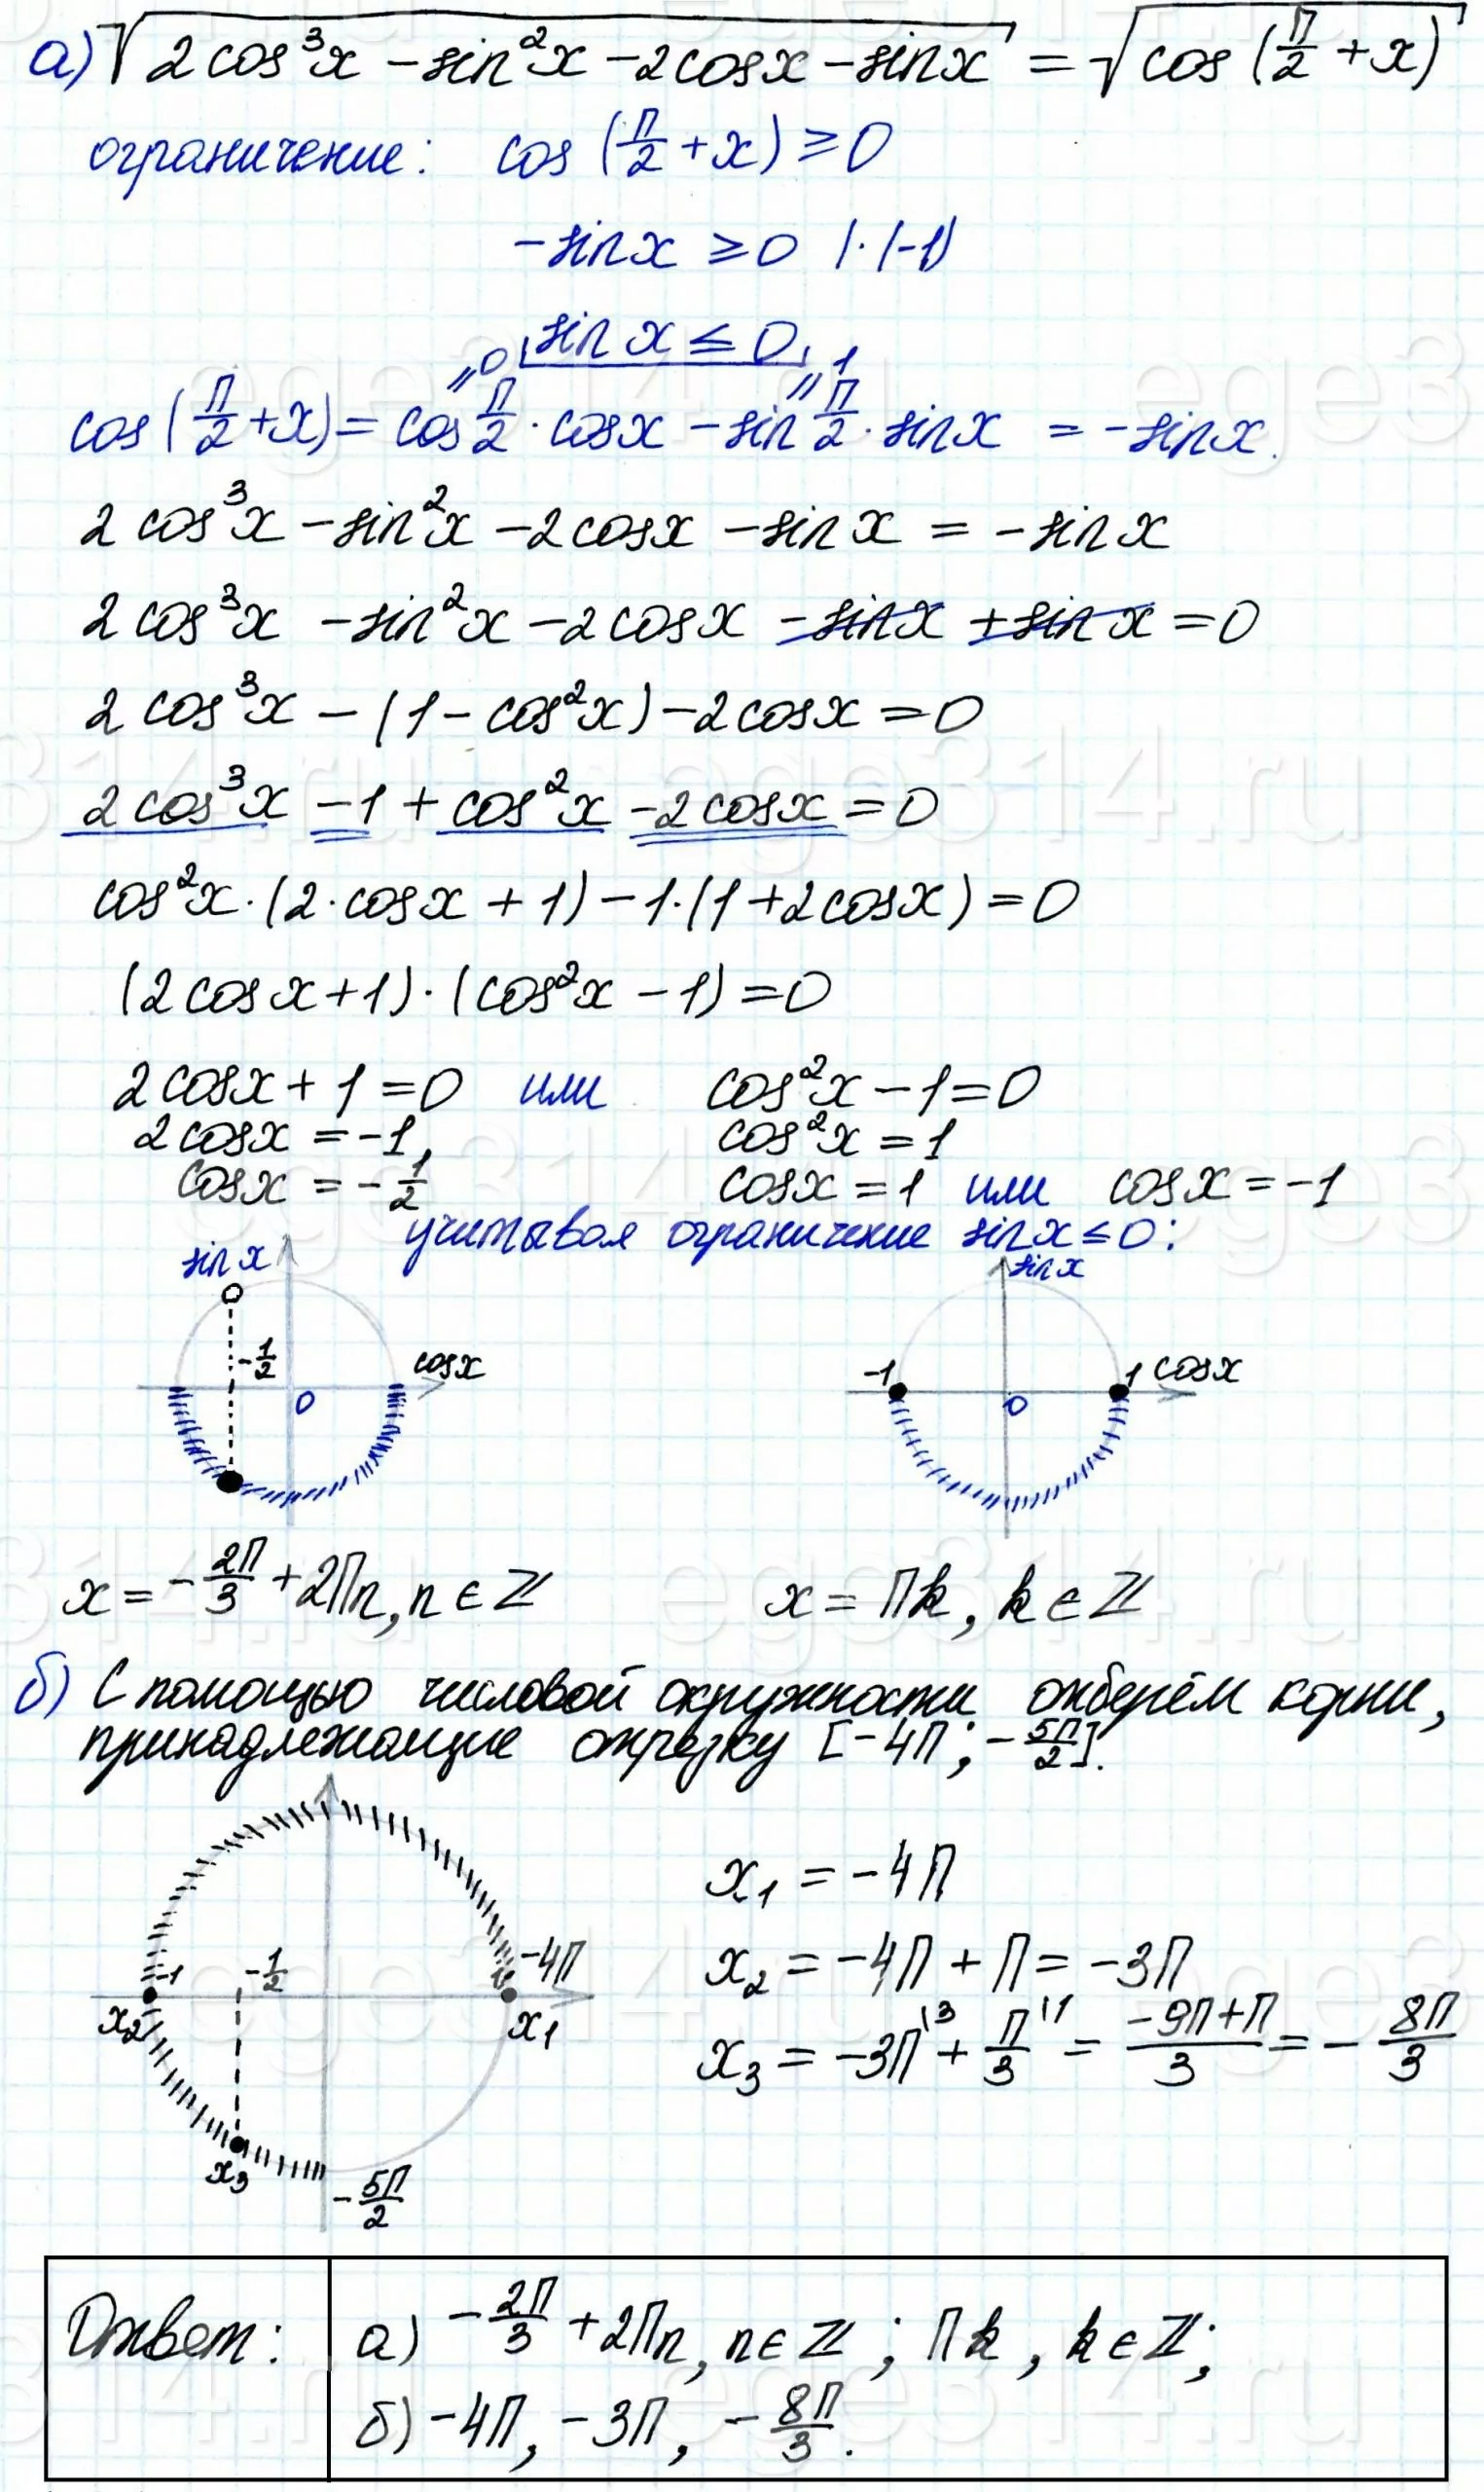 а) √(2cos³x − sin²x − 2cosx − sinx) = √(cos(π/2 + x))
ограничение: cos(π/2 + x) ≥ 0
−sinx ≥ 0 |·(−1)
sinx ≤ 0
"0 "1
cos(π/2 + x) = cos π/2 · cosx − sin π/2 · sinx = −sinx.
2cos³x − sin²x − 2cosx − sinx = −sinx
2cos³x − sin²x − 2cosx − sinx + sinx = 0
2cos³x − (1 − cos²x) − 2cosx = 0
2cos³x − 1 + cos²x − 2cosx = 0
cos²x·(2·cosx + 1) − 1·(1 + 2cosx) = 0
(2cosx + 1)·(cos²x − 1) = 0
2cosx + 1 = 0 или cos²x − 1 = 0
2cosx = −1, cos²x = 1
cosx = −1/2 cosx = 1 или cosx = −1
учитывая ограничение sinx ≤ 0:
sinx sinx
−1/2 cosx −1 1 cosx
0 0
x = −2π/3 + 2πn, n ∈ ℤ x = πk, k ∈ ℤ
б) С помощью числовой окружности отберём корни,
принадлежащие отрезку [−4π; −5π/2].
x₁ = −4π
−1 −1/2 −4π x₂ = −4π + π = −3π
x₂ x₁
x₃ = −3π\3 + π/3\1 = (−9π + π)/3 = −8π/3
x₃
−5π/2
Ответ: а) −2π/3 + 2πn, n ∈ ℤ; πk, k ∈ ℤ;
б) −4π, −3π, −8π/3.
ege314.ru